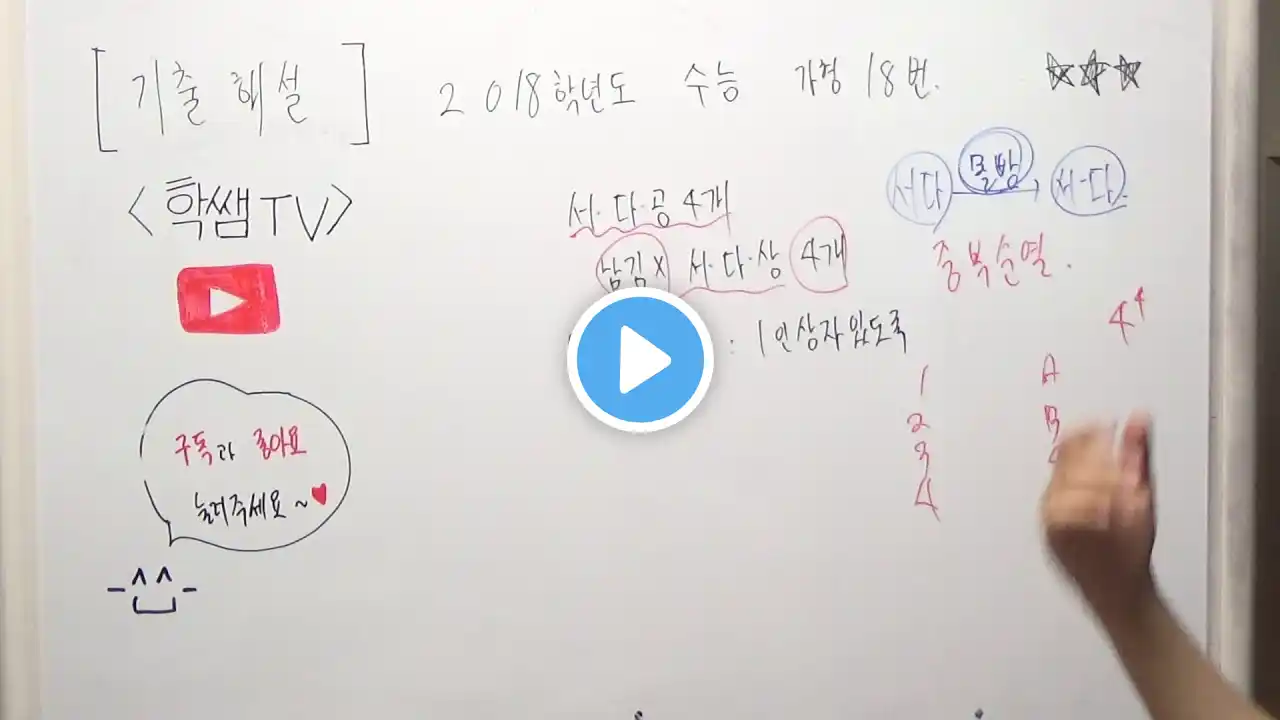 [기출 해설] 2018학년도 수능 가형 18번.
<학쌤TV>
서·다·공 4개
남김x 서·다·상 4개
: 1인상자있도록
서다 몰빵 서·다.
중복순열.
4⁴
1 A
2 B
3
4
구독과 좋아요
눌러주세요~♥
-^^-